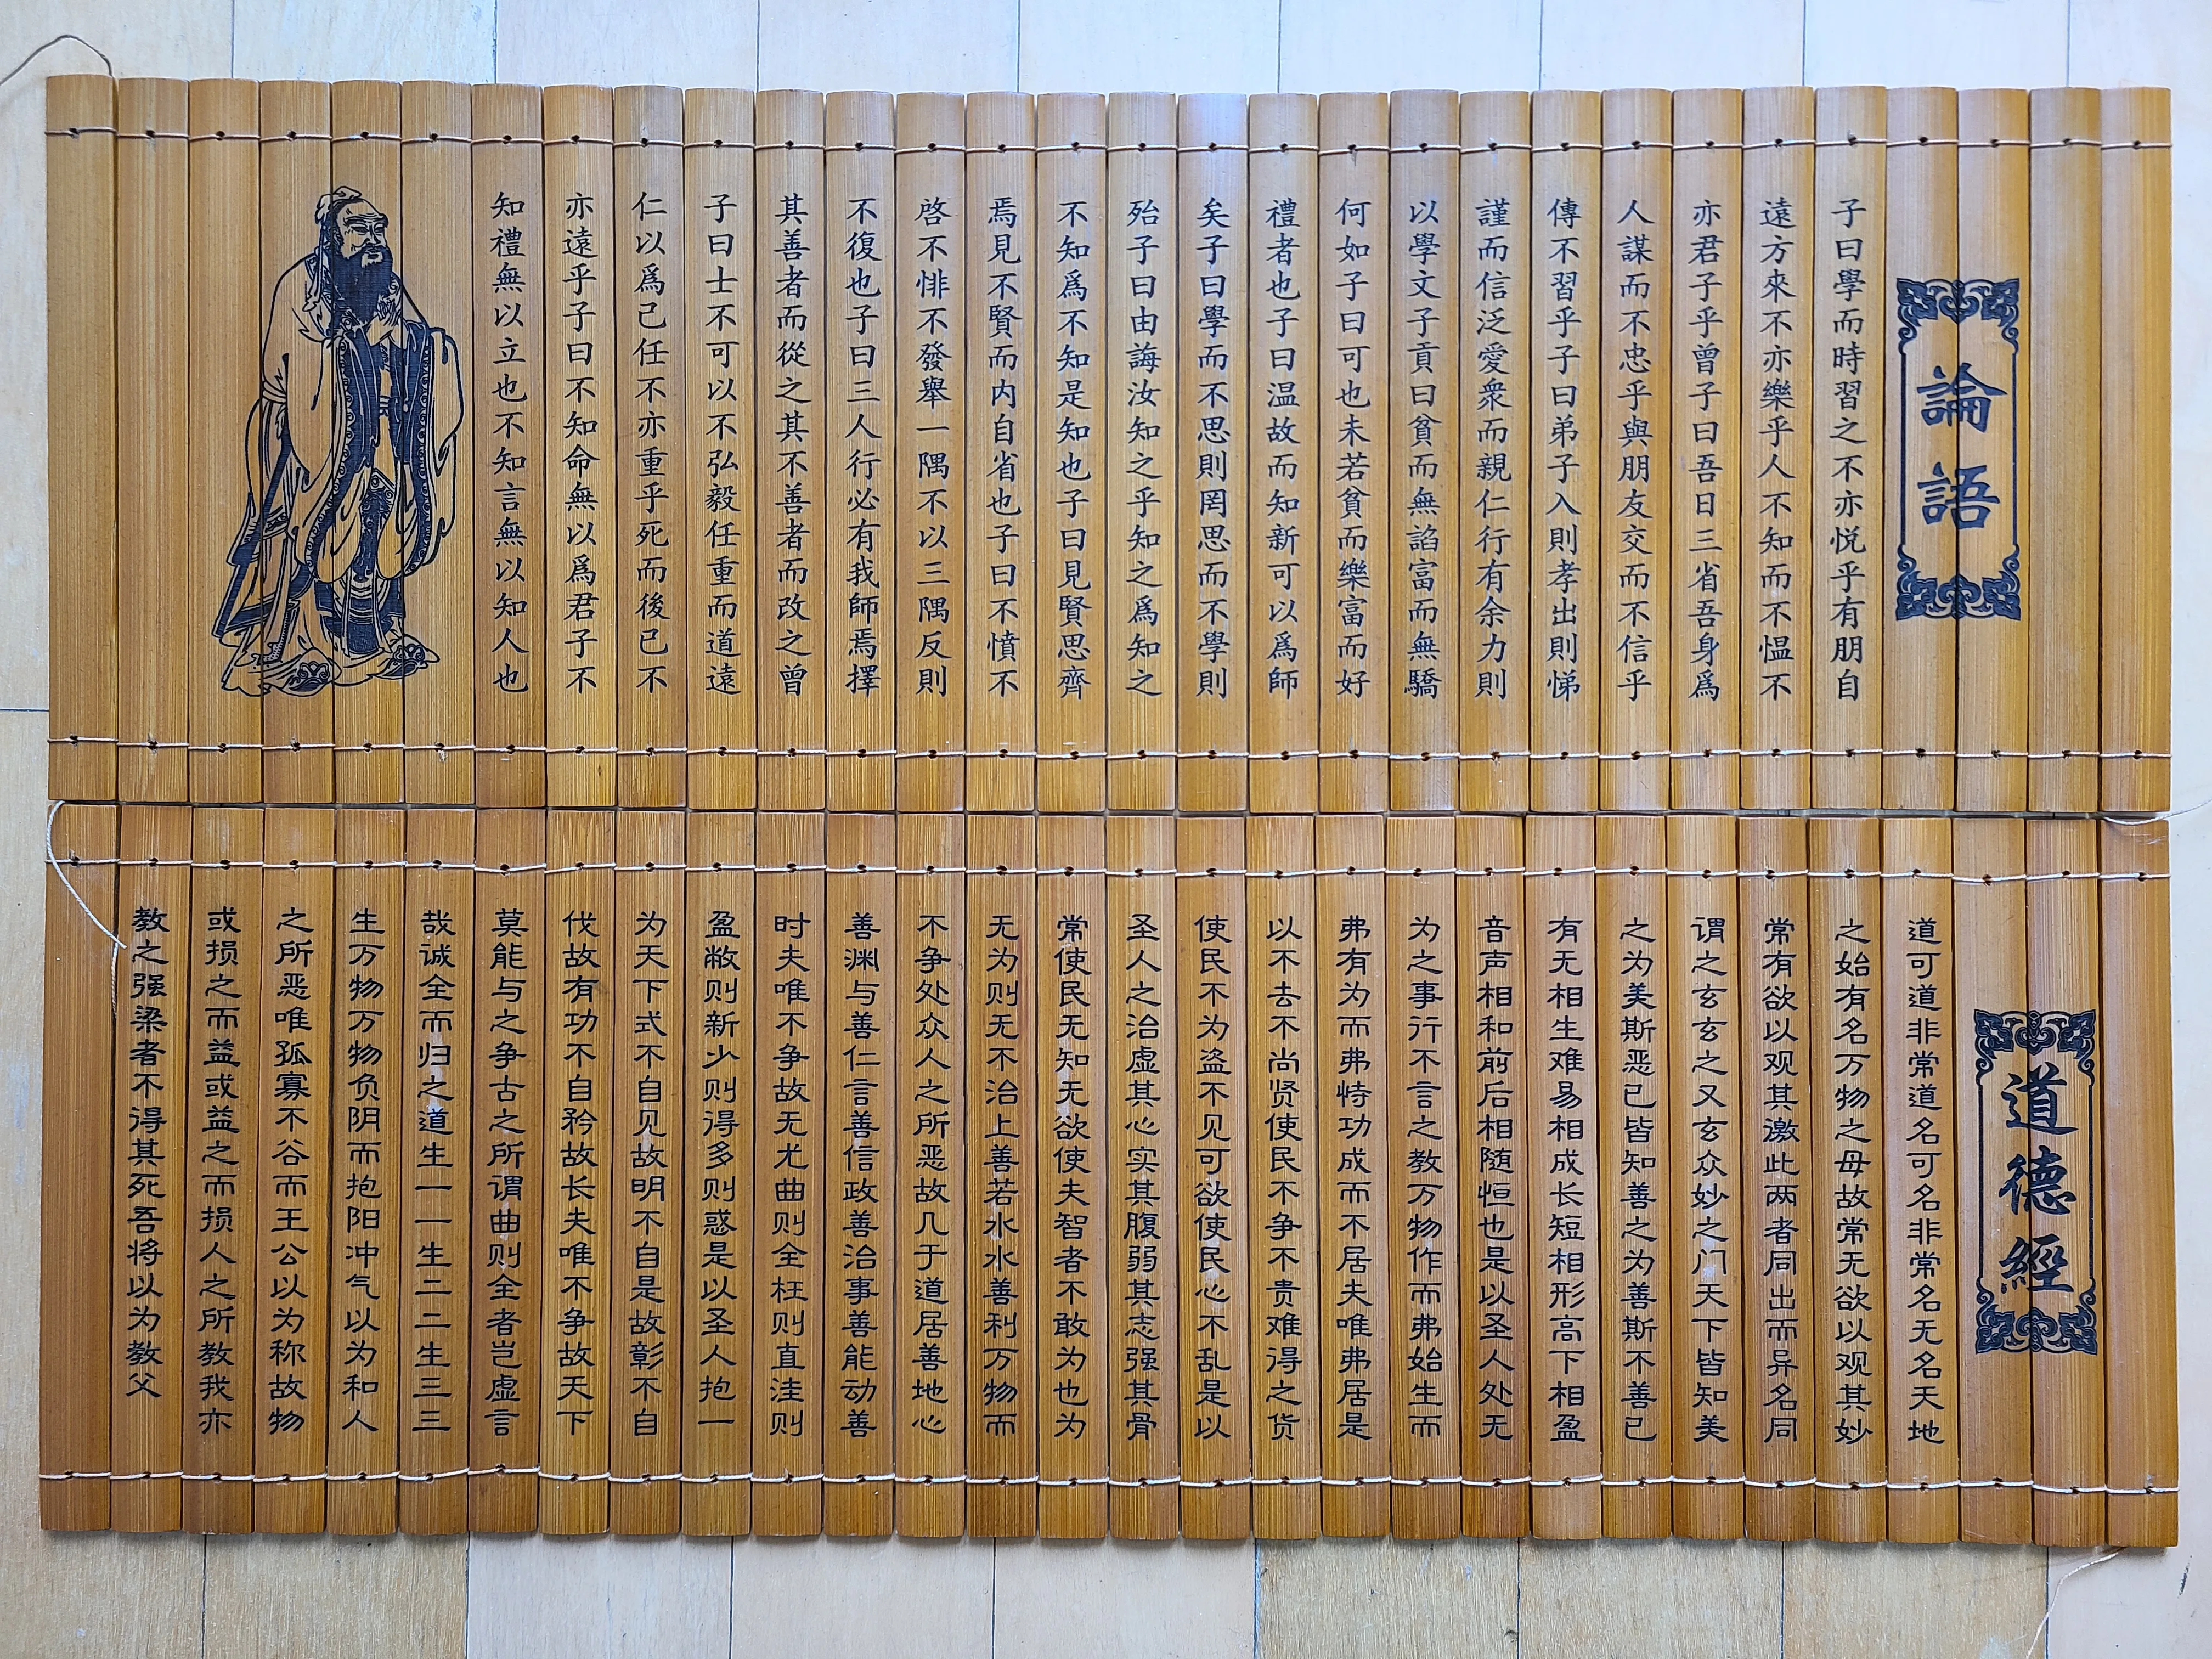 論語
子曰學而時習之不亦悦乎有朋自
遠方來不亦樂乎人不知而不愠不
亦君子乎曾子曰吾日三省吾身爲
人謀而不忠乎與朋友交而不信乎
傳不習乎子曰弟子入則孝出則悌
謹而信泛愛衆而親仁行有余力則
以學文子貢曰貧而無諂富而無驕
何如子曰可也未若貧而樂富而好
禮者也子曰温故而知新可以爲師
矣子曰學而不思則罔思而不學則
殆子曰由誨汝知之乎知之爲知之
不知爲不知是知也子曰見賢思齊
焉見不賢而内自省也子曰不憤不
啓不悱不發舉一隅不以三隅反則
不復也子曰三人行必有我師焉擇
其善者而從之其不善者而改之曾
子曰士不可以不弘毅任重而道遠
仁以爲己任不亦重乎死而後已不
亦遠乎子曰不知命無以爲君子不
知禮無以立也不知言無以知人也
道德經
道可道非常道名可名非常名无名天地
之始有名万物之母故常无欲以观其妙
常有欲以观其激此两者同出而异名同
谓之玄玄之又玄众妙之门天下皆知美
之为美斯恶已皆知善之为善斯不善已
有无相生难易相成长短相形高下相盈
音声相和前后相随恒也是以圣人处无
为之事行不言之教万物作而弗始生而
弗有为而弗恃功成而不居夫唯弗居是
以不去不尚贤使民不争不贵难得之货
使民不为盗不见可欲使民心不乱是以
圣人之治虚其心实其腹弱其志强其骨
常使民无知无欲使夫智者不敢为也为
无为则无不治上善若水水善利万物而
不争处众人之所恶故几于道居善地心
善渊与善仁言善信政善治事善能动善
时夫唯不争故无尤曲则全枉则直洼则
盈敝则新少则得多则惑是以圣人抱一
为天下式不自见故明不自是故彰不自
伐故有功不自矜故长夫唯不争故天下
莫能与之争古之所谓曲则全者岂虚言
哉诚全而归之道生一一生二二生三三
生万物万物负阴而抱阳冲气以为和人
之所恶唯孤寡不谷而王公以为称故物
或损之而益或益之而损人之所教我亦
教之强梁者不得其死吾将以为教父